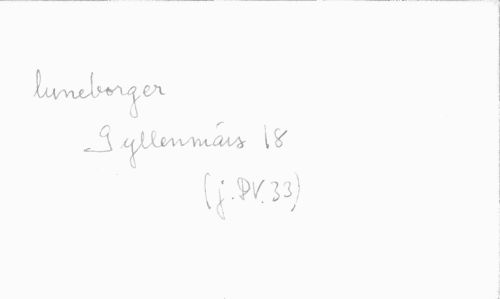 luneborger
Gyllenmårs 18
(j. DV. 33)